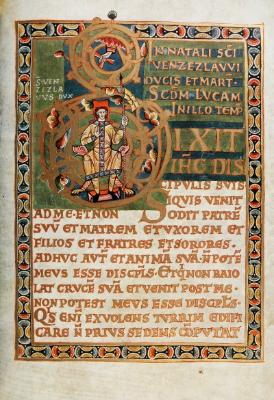 IN NATALI SCI
VENZEZLAVVI
DVCIS ET MART
SCDM LVCAM
IN ILLO TEMP
S VEN
ZEZLA
VVS DVX
DIXIT
IHC DIS
CIPVLIS SVIS
SIQVIS VENIT
AD ME ET NON ODIT PATRE
SVV ET MATREM ET VXOREM ET
FILIOS ET FRATRES ET SORORES
ADHVC AVT ET ANIMA SVA N POTE
MEVS ESSE DISCPLS ET Q NON BAIO
LAT CRVCE SVA ET VENIT POST ME
NON POTEST MEVS ESSE DISCIPLS
QS ENI EX VOLENS TVRRIM EDIFI
CARE N PRIVS SEDENS COPVTAT